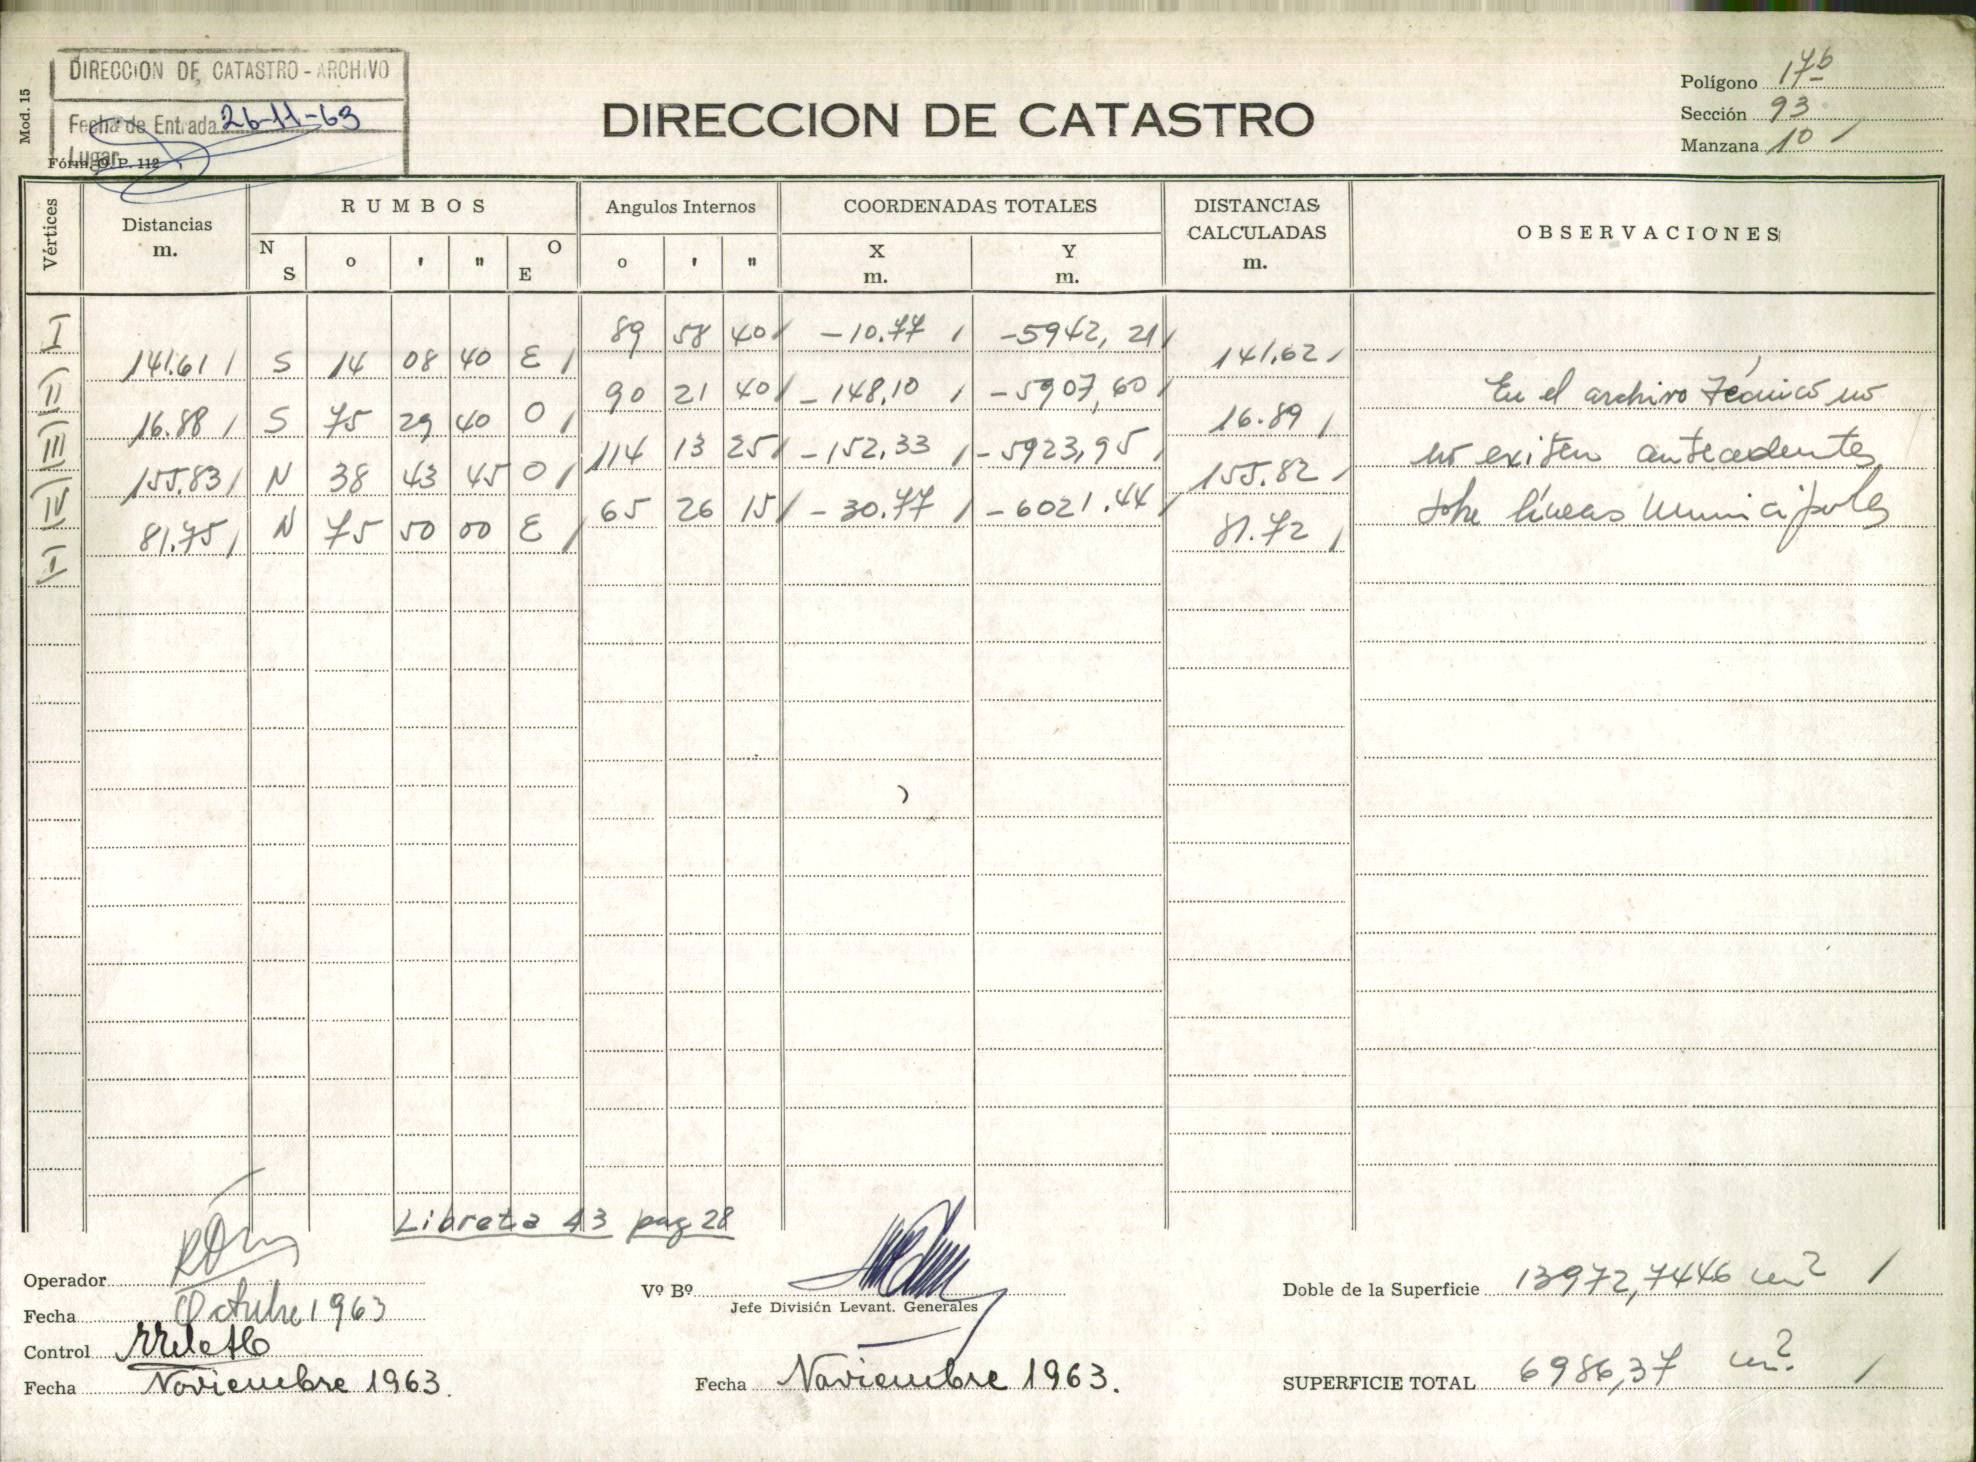 DIRECCION DE CATASTRO - ARCHIVO
Fecha de Entrada 26-11-63
Lugar
Mod. 15
Fórm. O. P. 112
DIRECCION DE CATASTRO
Polígono 17b
Sección 93
Manzana 10 /
Vértices
Distancias
m.
RUMBOS
N S
o
'
"
O E
Angulos Internos
o
'
"
COORDENADAS TOTALES
X
m.
Y
m.
DISTANCIAS
CALCULADAS
m.
OBSERVACIONES
I 89 58 40 / -10.77 / -5942,21 /
141.61 / S 14 08 40 E / 141.62 /
II 90 21 40 / -148,10 / -5907,60 / En el archivo técnico no
16.88 / S 75 29 40 O / 16.89 /
III 114 13 25 / -152,33 / -5923,95 / no exiten antecedentes
155.83 / N 38 43 45 O / 155.82 /
IV 65 26 15 / -30.77 / -6021.44 / sobre líneas Municipales
81.75 / N 75 50 00 E / 81.72 /
I
Libreta 43 pag 28
Operador
Fecha Octubre 1963
Control
Fecha Noviembre 1963.
Vº Bº
Jefe División Levant. Generales
Fecha Noviembre 1963.
Doble de la Superficie 13972,7446 m² /
SUPERFICIE TOTAL 6986,37 m². /